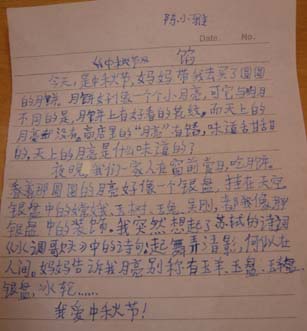 陈小雅
Date. No.
《中秋节》
今天,是中秋节,妈妈带我去买了圆圆
的月饼。月饼好像一个个小月亮,可它与月
不同的是,月饼上有好看的花纹,而天上的
月亮 没有。商店里的“月亮”有 ,味道甜甜
的,天上的月亮是什么味道的?
夜晚,我们一家人在窗前赏月,吃月饼。
看着那圆圆的月亮好像一个银盘,挂在天空
银盘中的嫦娥、玉树、玉兔、吴刚,都我像那
银盘中的装饰。我突然想起了苏轼的诗词
《水调歌头》中的诗句:起舞弄清影,何似在
人间。妈妈告诉我月亮别称有玉羊、玉盘、
银盘、冰轮……
我爱中秋节!